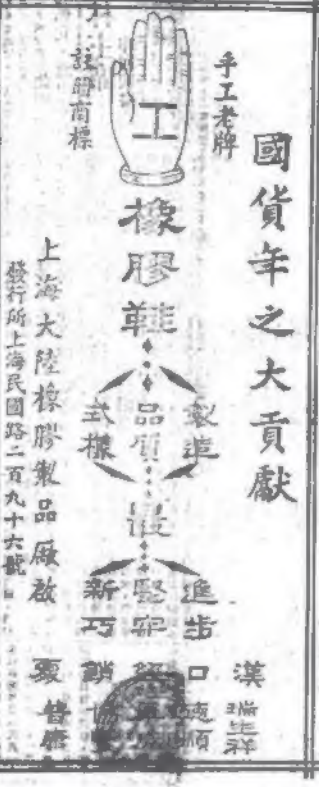 國貨年之大貢獻
手工老牌
工
註冊商標
橡膠鞋
製造
品質
式樣
進步
堅牢
新巧
上海大陸橡膠製品廠啟
發行所上海民國路二百九十六號
漢口
銷
瑞生祥
德順